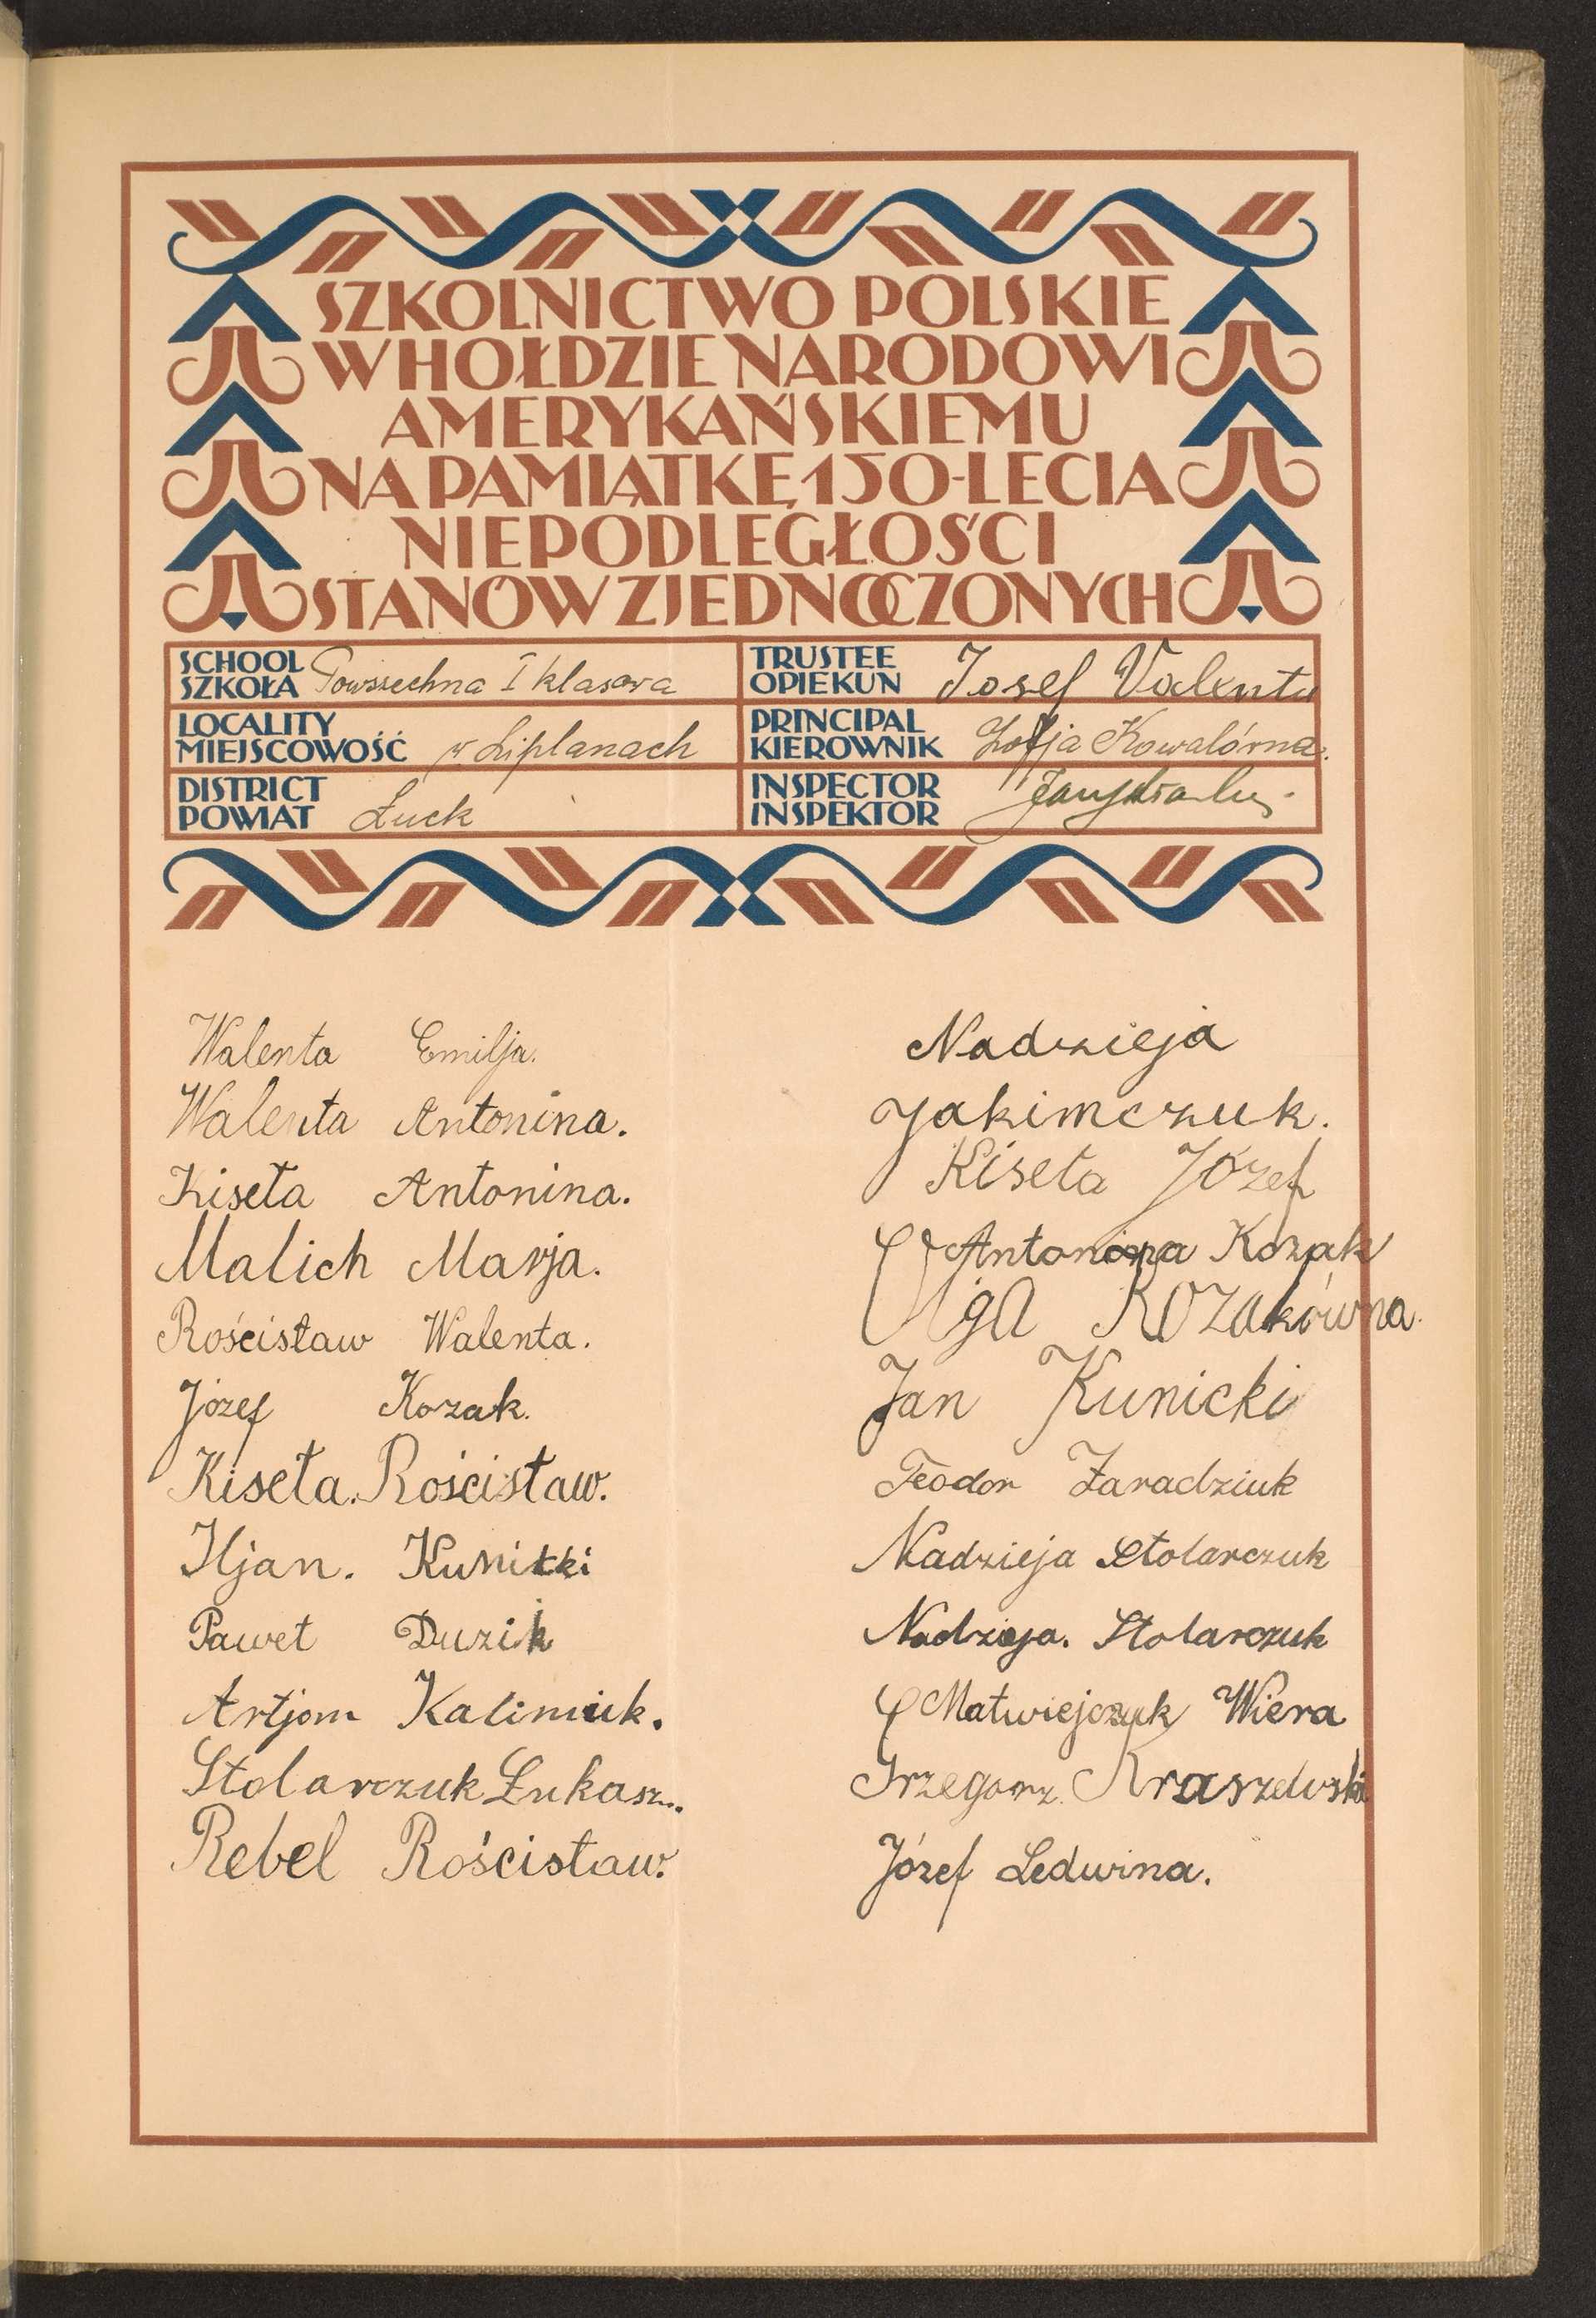 SZKOLNICTWO POLSKIE
W HOŁDZIE NARODOWI
AMERYKAŃSKIEMU
NA PAMIĄTKĘ 150-LECIA
NIEPODLEGŁOŚCI
STANÓW ZJEDNOCZONYCH
SCHOOL
SZKOŁA Powszechna I klasowa
LOCALITY
MIEJSCOWOŚĆ w Liplanach
DISTRICT
POWIAT Łuck
TRUSTEE
OPIEKUN Josef Valenta
PRINCIPAL
KIEROWNIK Zofja Kowalówna.
INSPECTOR
INSPEKTOR
Walenta Emilja.
Walenta Antonina.
Kiseła Antonina.
Malich Marja.
Rościsław Walenta.
Józef Kozak.
Kiseła. Rościsław.
Iljan. Kunikki
Paweł Duzik
Artjom Kalimiuk.
Stolarczuk Łukasz..
Rebel Rościsław.
Nadzieja
Jakimczuk.
Kiseła Józef
Antonina Kozak
Olga Kozakówna.
Jan Kunicki
Teodor Zaradziuk
Nadzieja Stolarczuk
Nadzieja. Stolarczuk
Matwiejczuk Wiera
Grzegorz. Kraszewski
Józef Ledwina.